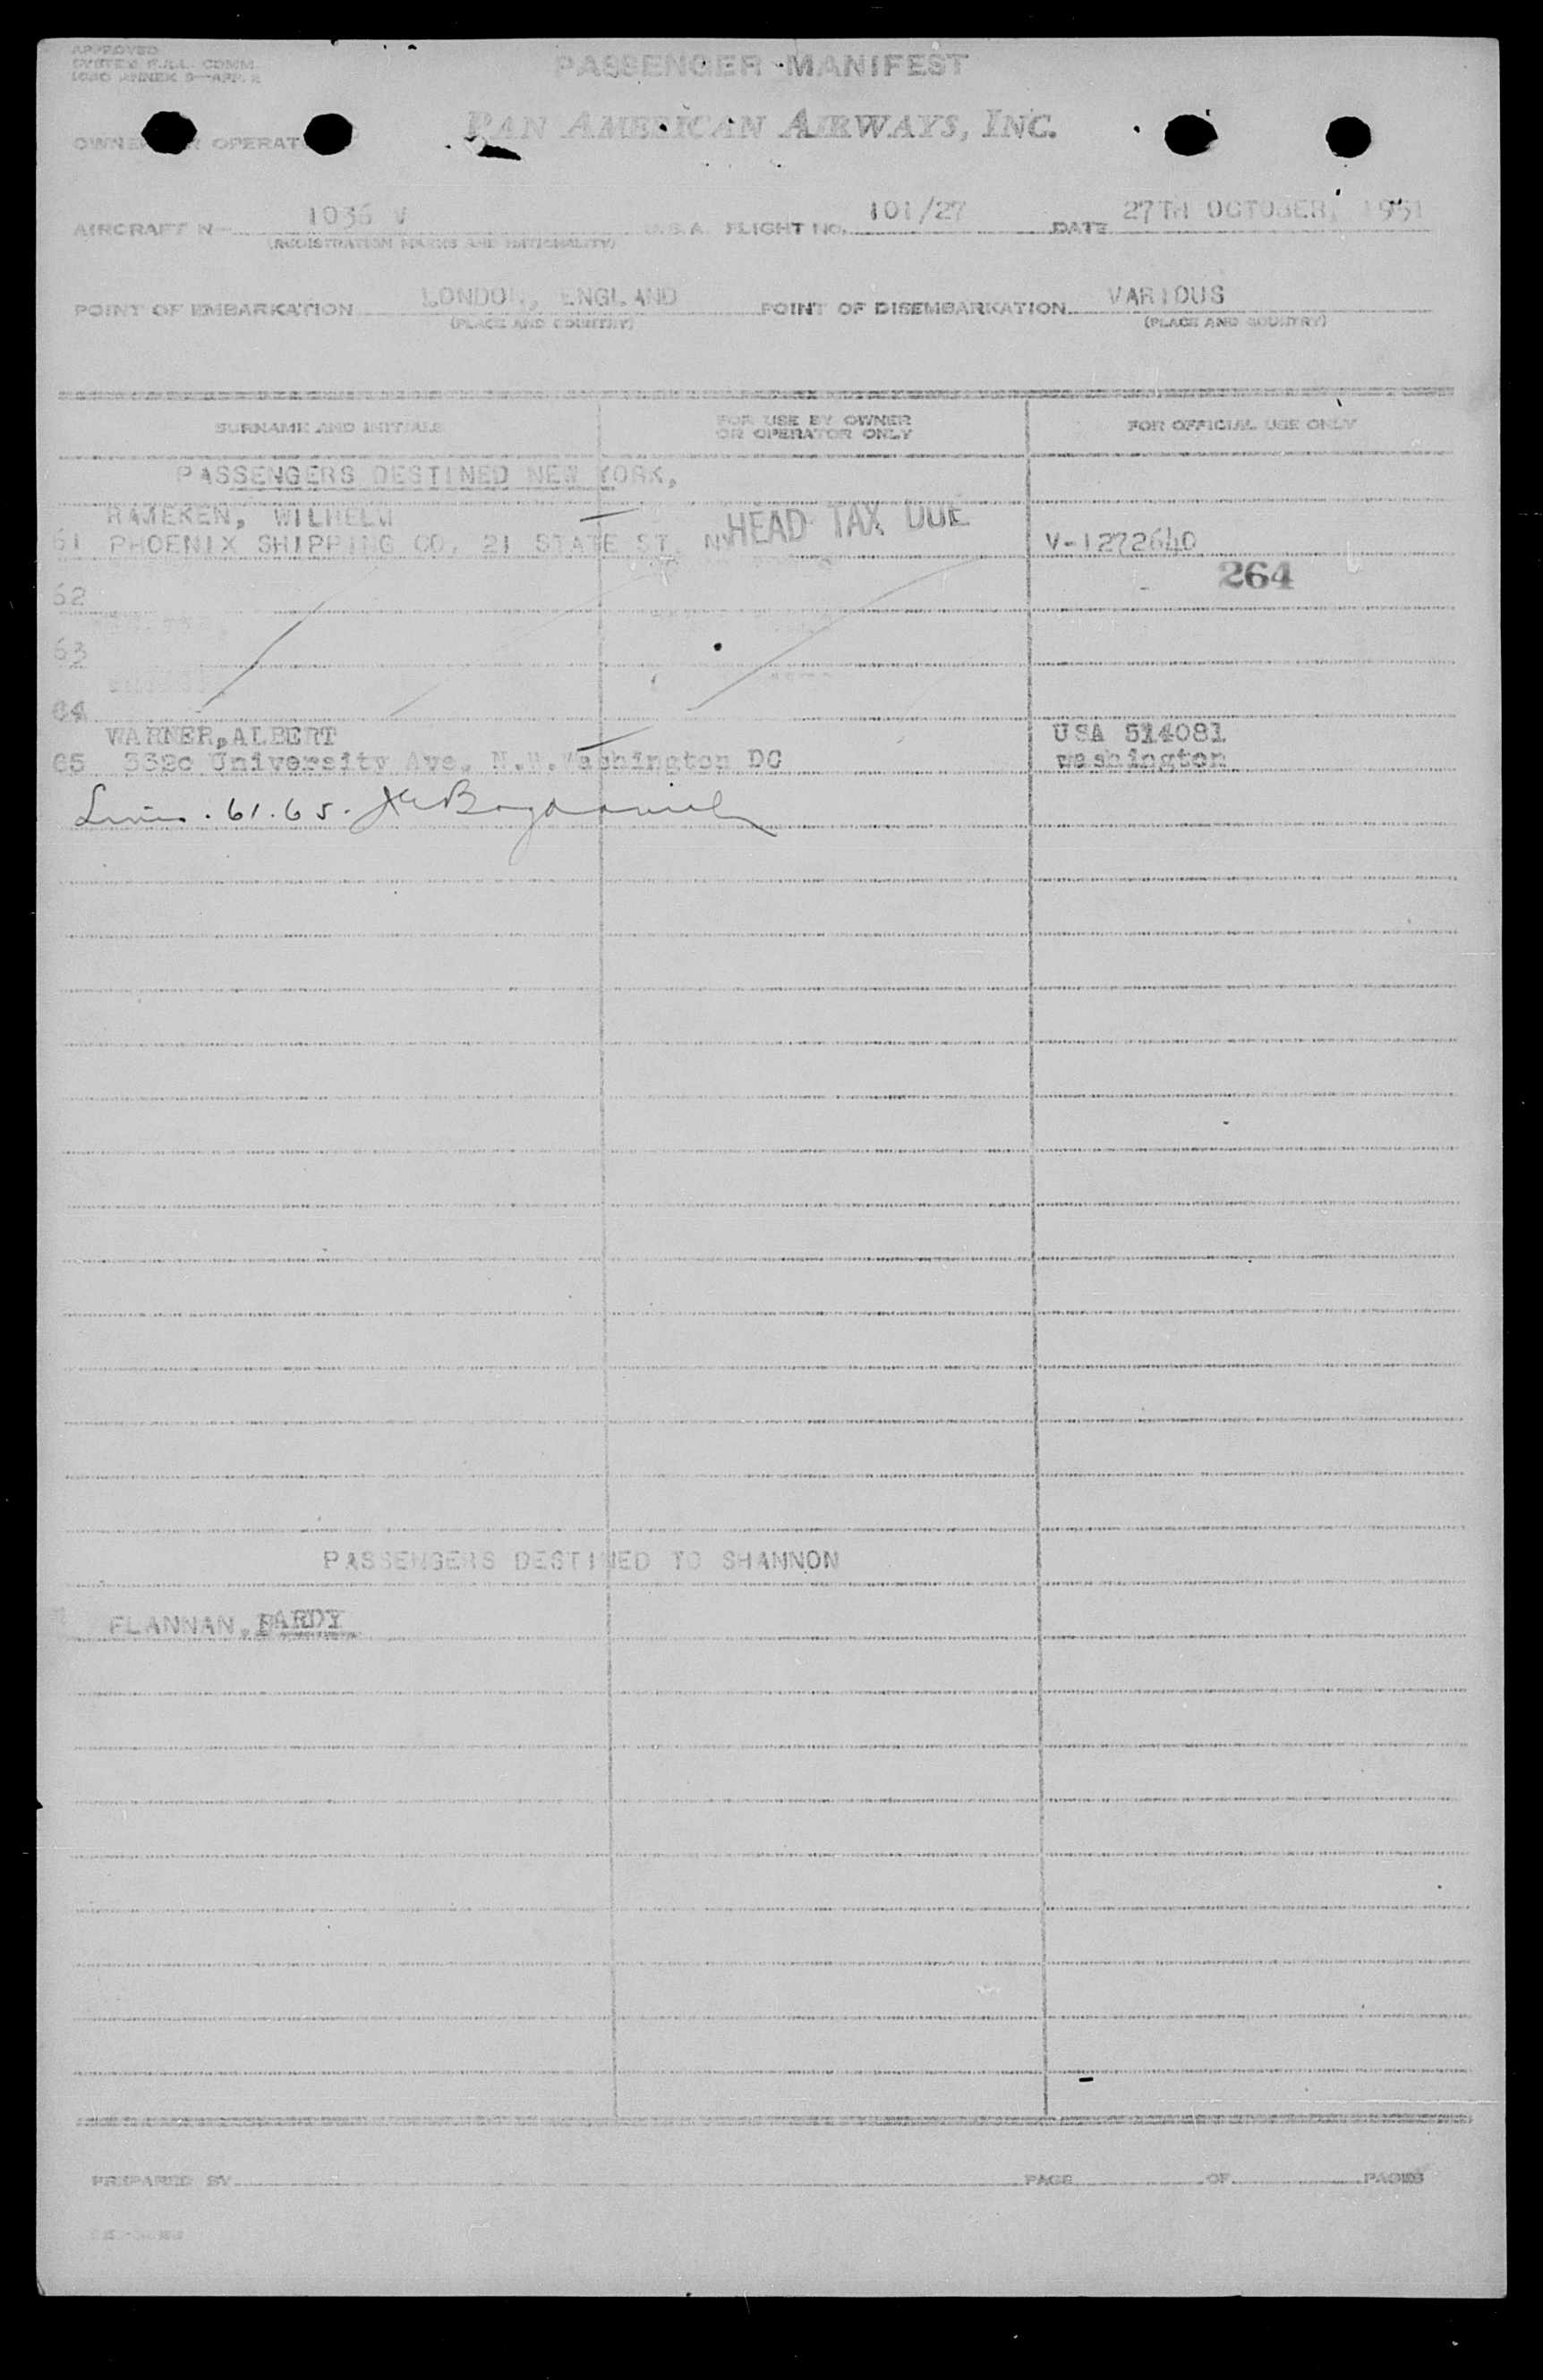 APPROVED
SYSTEM F.A.L. COMM.
ICAO ANNEX 9—APP. 2
PASSENGER MANIFEST
OWNER OR OPERATOR
PAN AMERICAN AIRWAYS, INC.
AIRCRAFT N— 1036 V U.S.A. FLIGHT NO. 101/27 DATE 27TH OCTOBER, 1951
(REGISTRATION MARKS AND NATIONALITY)
POINT OF EMBARKATION LONDON, ENGLAND POINT OF DISEMBARKATION VARIOUS
(PLACE AND COUNTRY) (PLACE AND COUNTRY)
SURNAME AND INITIALS FOR USE BY OWNER OR OPERATOR ONLY FOR OFFICIAL USE ONLY
PASSENGERS DESTINED NEW YORK,
WILHELM
HEAD TAX DUE
61 PHOENIX SHIPPING CO, 21 STATE ST. NY V-1272640
264
62
63
64
WARNER, ALBERT USA 514081
65 University Ave. N.W. Washington DC washington
Lines . 61.65.
PASSENGERS DESTINED TO SHANNON
FLANNAN, PARDY
PREPARED BY PAGE OF PAGES